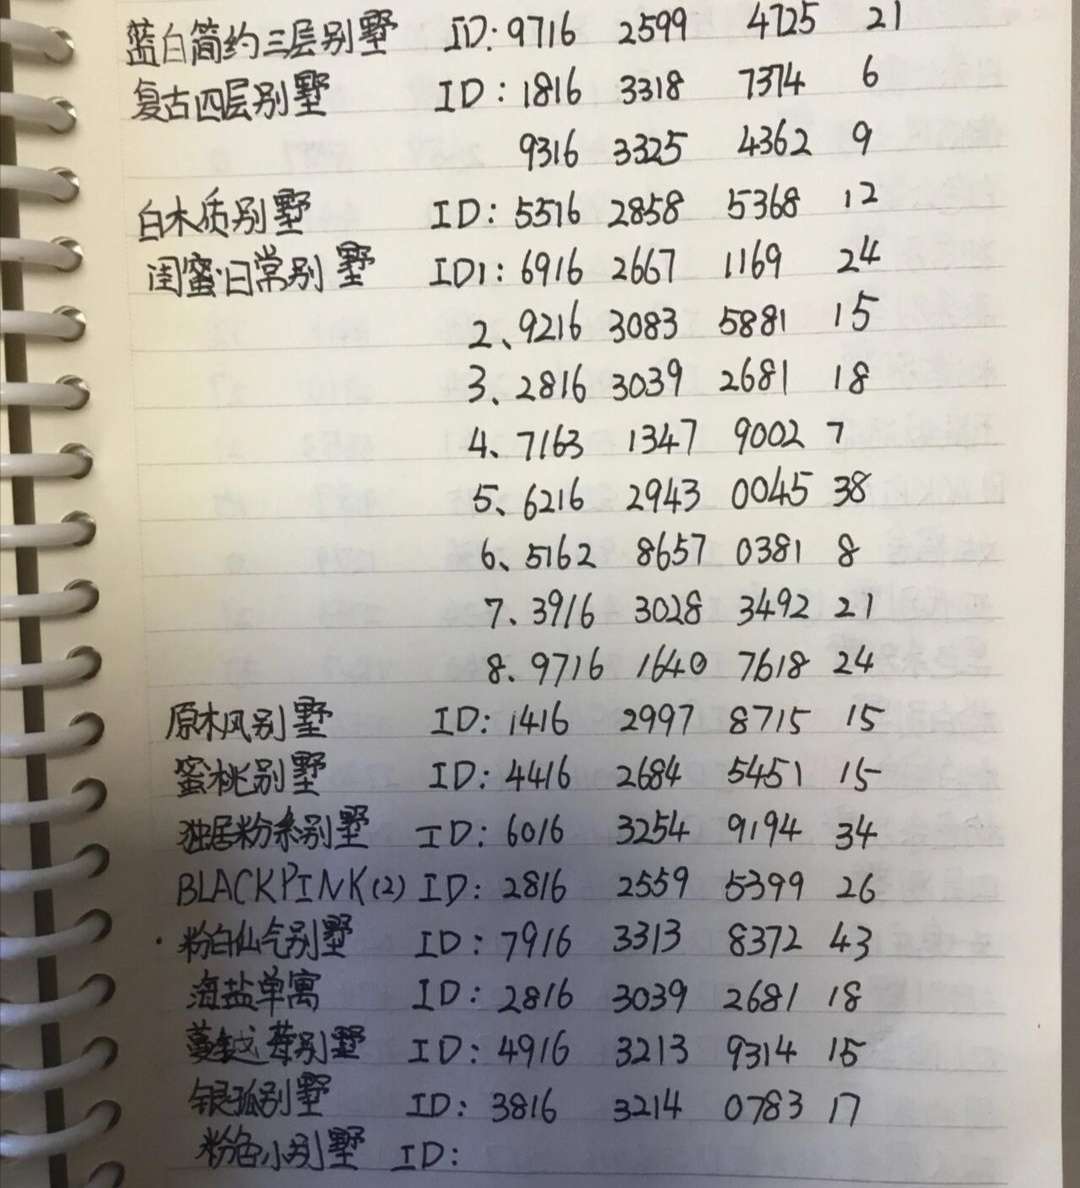 蓝白简约三层别墅 ID: 9716 2599 4725 21
复古四层别墅 ID: 1816 3318 7374 6
9316 3325 4362 9
白木质别墅 ID: 5516 2858 5368 12
闺蜜日常别墅 ID1: 6916 2667 1169 24
2、9216 3083 5881 15
3、2816 3039 2681 18
4、7163 1347 9002 7
5、6216 2943 0045 38
6、5162 8657 0381 8
7、3916 3028 3492 21
8、9716 1640 7618 24
原木风别墅 ID: 1416 2997 8715 15
蜜桃别墅 ID: 4416 2684 5451 15
独居粉系别墅 ID: 6016 3254 9194 34
BLACKPINK(2) ID: 2816 2559 5399 26
粉白仙气别墅 ID: 7916 3313 8372 43
海盐单寓 ID: 2816 3039 2681 18
蔓越莓别墅 ID: 4916 3213 9314 15
银狐别墅 ID: 3816 3214 0783 17
粉色小别墅 ID: